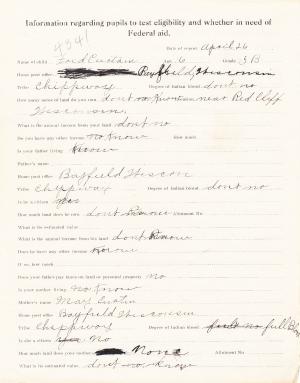 Information regarding pupils to test eligibility and whether in need of
Federal aid.
4341
Date of report April 26
Name of child Age 6 Grade 3B
Home post office Bayfield, Wisconsin
Tribe Chippway Degree of Indian blood dont no
How many acres of land do you own dont no near Red Cliff
Wisconsin.
What is the annual income from your land dont no
Do you have any other income no Know How much
Is your father living Know
Father's name
Home post office Bayfield Wiscon
Tribe Chippway Degree of Indian blood dont no
Is he a citizen yes
How much land does he own dont Know Allotment No.
What is its estimated value
What is the annual income from his land dont Know
Does he have any other income Know
If so, how much
Does your father pay taxes on land or personal property no
Is your mother living no Know
Mother's name May
Home post office Bayfield Wisconsin
Tribe Chippway Degree of Indian blood full
Is she a citizen No
How much land does your mother None Allotment No.
What is its estimated value dont no Know